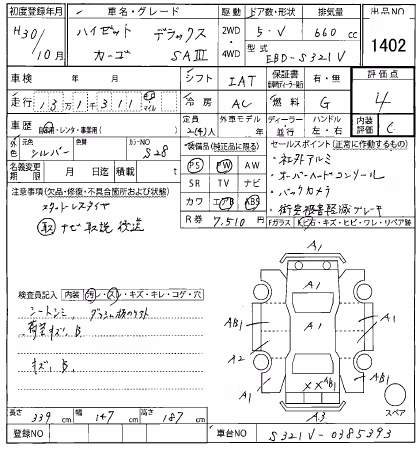 初度登録年月 車名・グレード 駆動 ドア数・形状 排気量 出品NO
H30/10月 ハイゼット カーゴ デラックス SAⅢ 2WD・4WD 5・V 660cc 1402
型式 EBD-S321V
車検 年 月 シフト IAT 保証書 有・無 評価点 4
走行 13万1千311 km マイル 冷房 AC 燃料 G
車歴 自家用・レンタ・事業用( ) 定員 2(4)人 外車モデル 年 ディーラー 並行 ハンドル 左・右 内装評価 C
外色 元色 シルバー カラーNO S28
装備品(純正品に限る) PS PW AW
SR TV ナビ
カワ エアB ABS
R券 7,510円
セールスポイント(正常に作動するもの)
・社外アルミ
・オーバーヘッドコンソール
・バックカメラ
・衝突被害軽減ブレーキ
Fガラス 石・キズ・ヒビ・ワレ・リペア跡
名義変更期限 月 日 迄 積載 t
注意事項(欠品・修復・不具合箇所および状態)
スタッドレスタイヤ
取 ナビ取説後送
検査員記入 内装 汚レ・スレ・キズ・キレ・コゲ・穴
シートシミ、
荷室キズ、B、
キズ、B、
A1
A1
A1
AB1
AB1
A1
A2
A1
A1
A1
XX AB1
A3
スペア
長さ 339cm 幅 147cm 高さ 187cm
登録NO 車台NO S321V-0385393